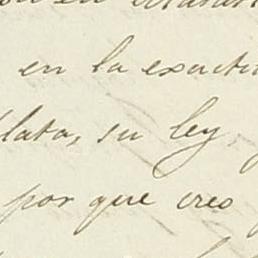 en la exactit
lata, su ley
por que creo